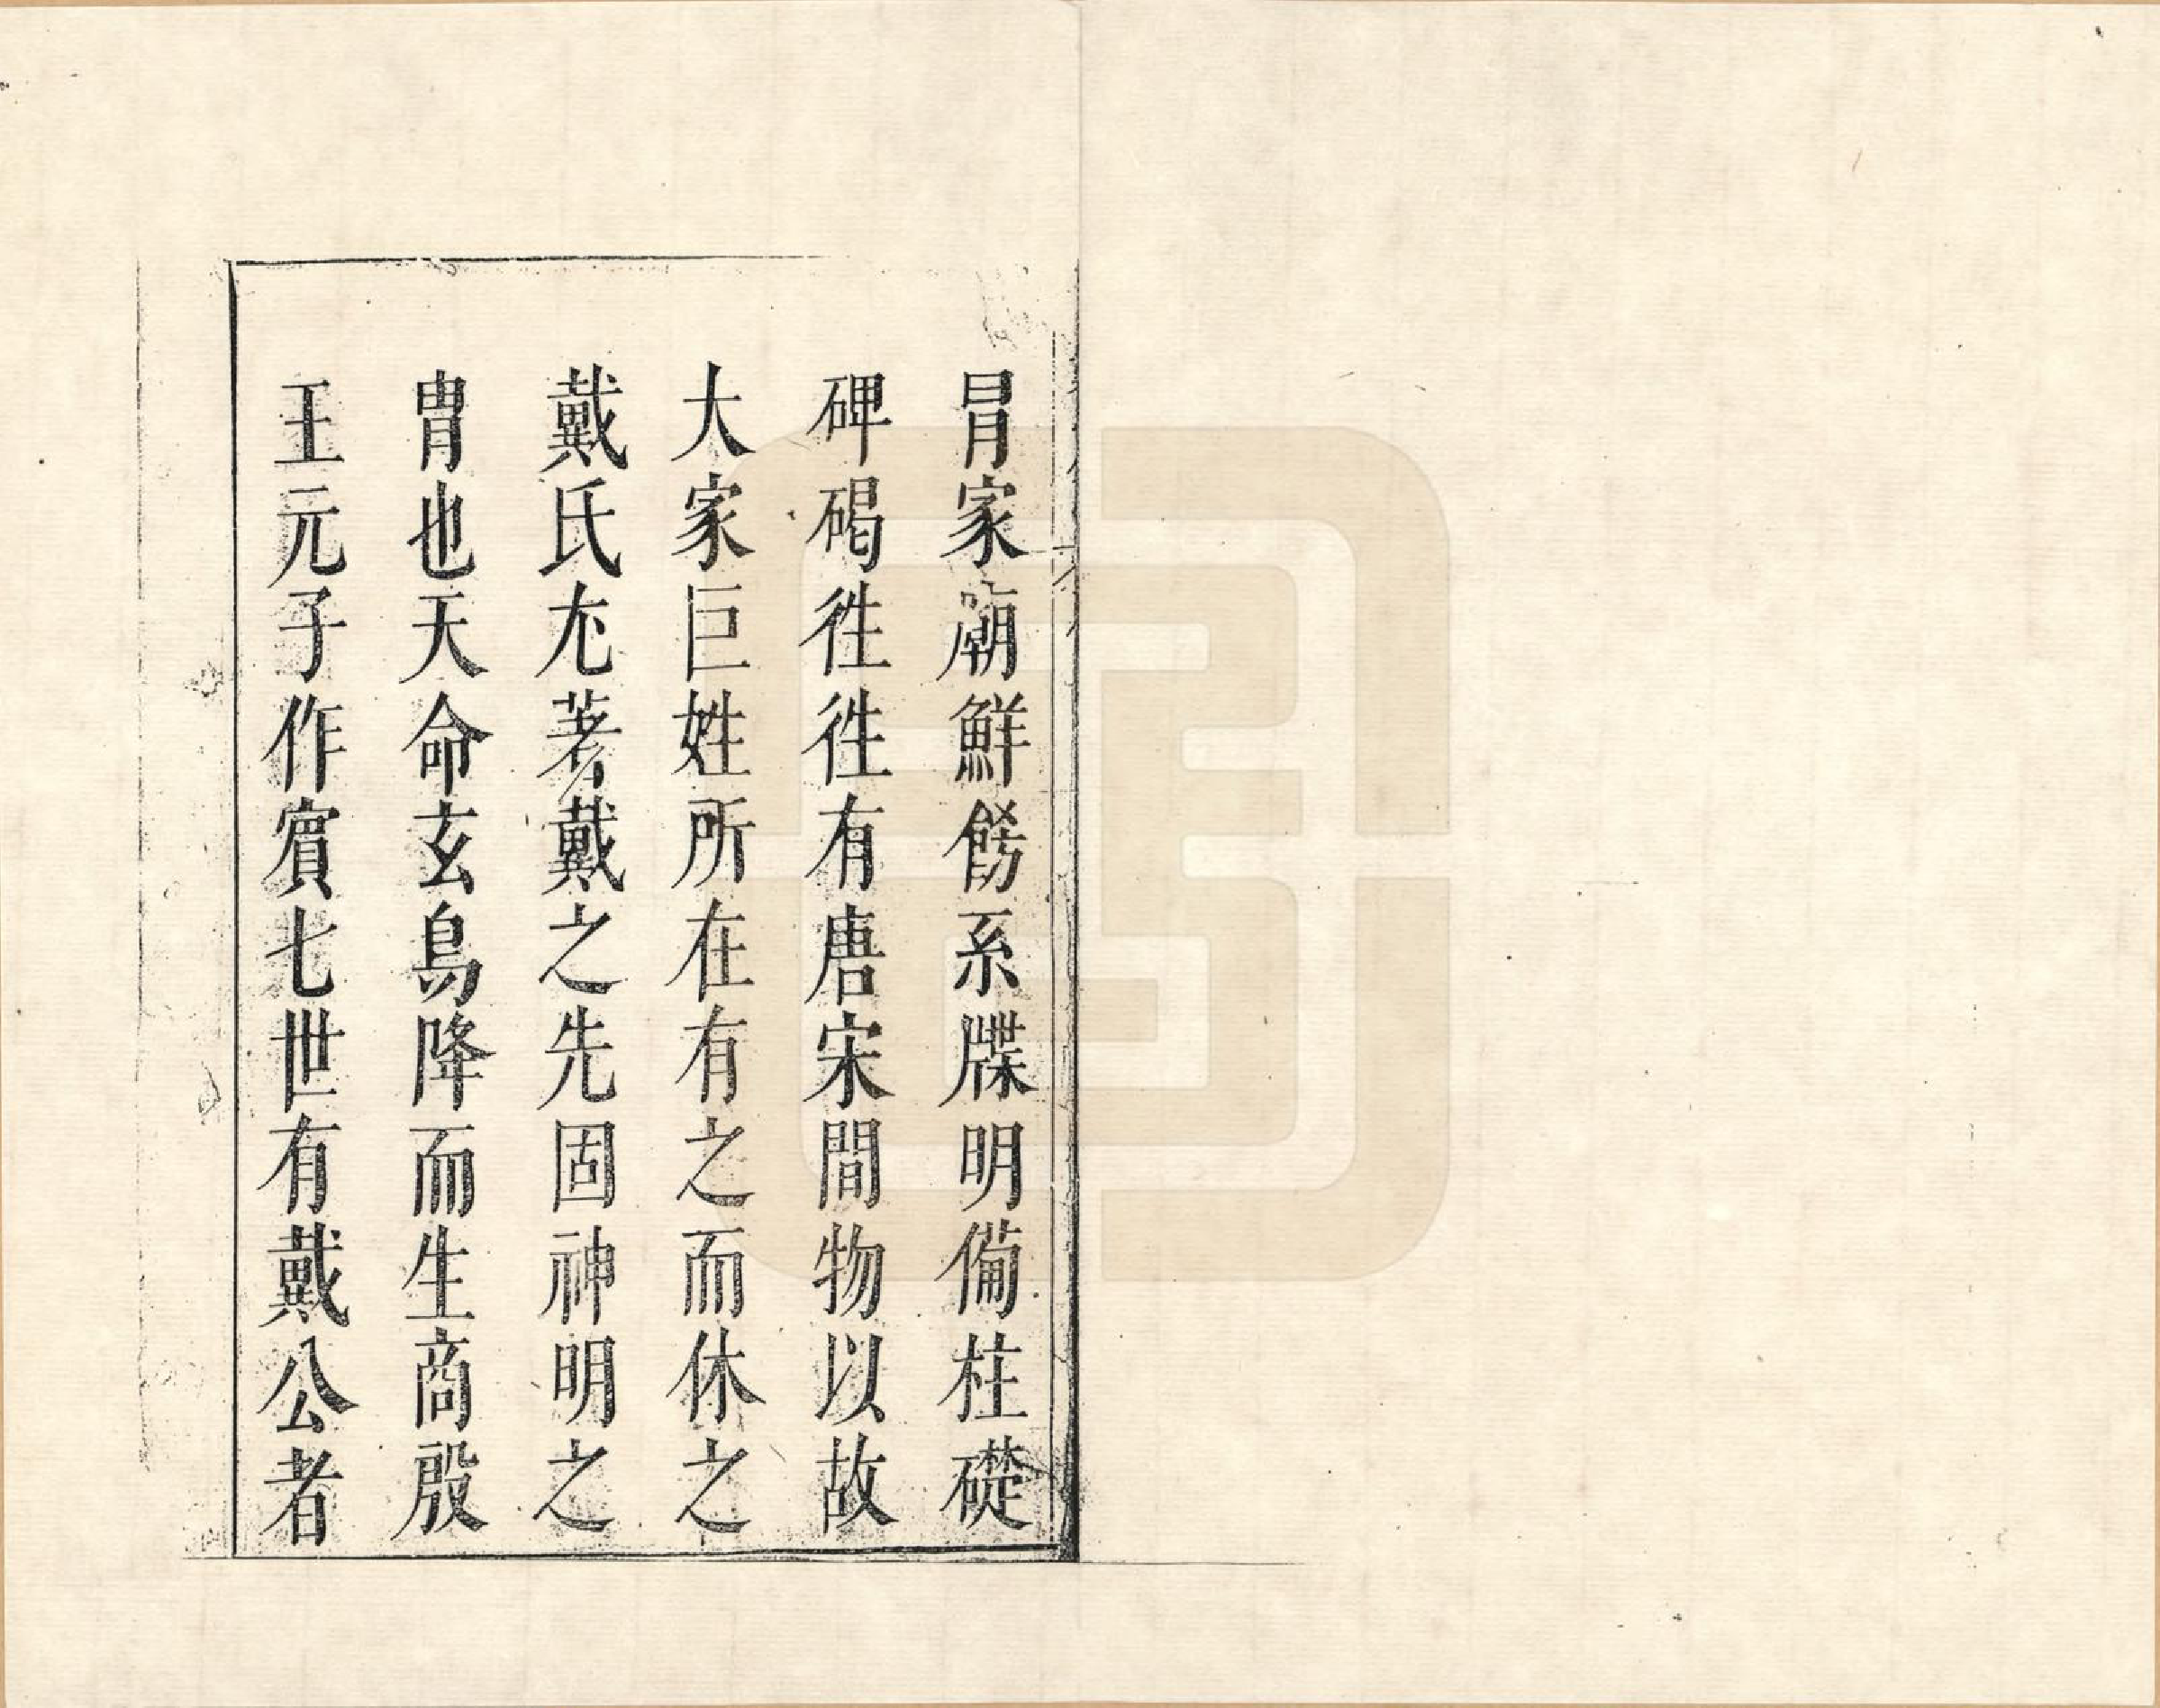 冐家廟鮮餝系牒明備柱礎
碑碣徃徃有唐宋間物以故
大家巨姓所在有之而休之
戴氏尢著戴之先固神明之
胄也天命玄鳥降而生商殷
王元子作賔七世有戴公者